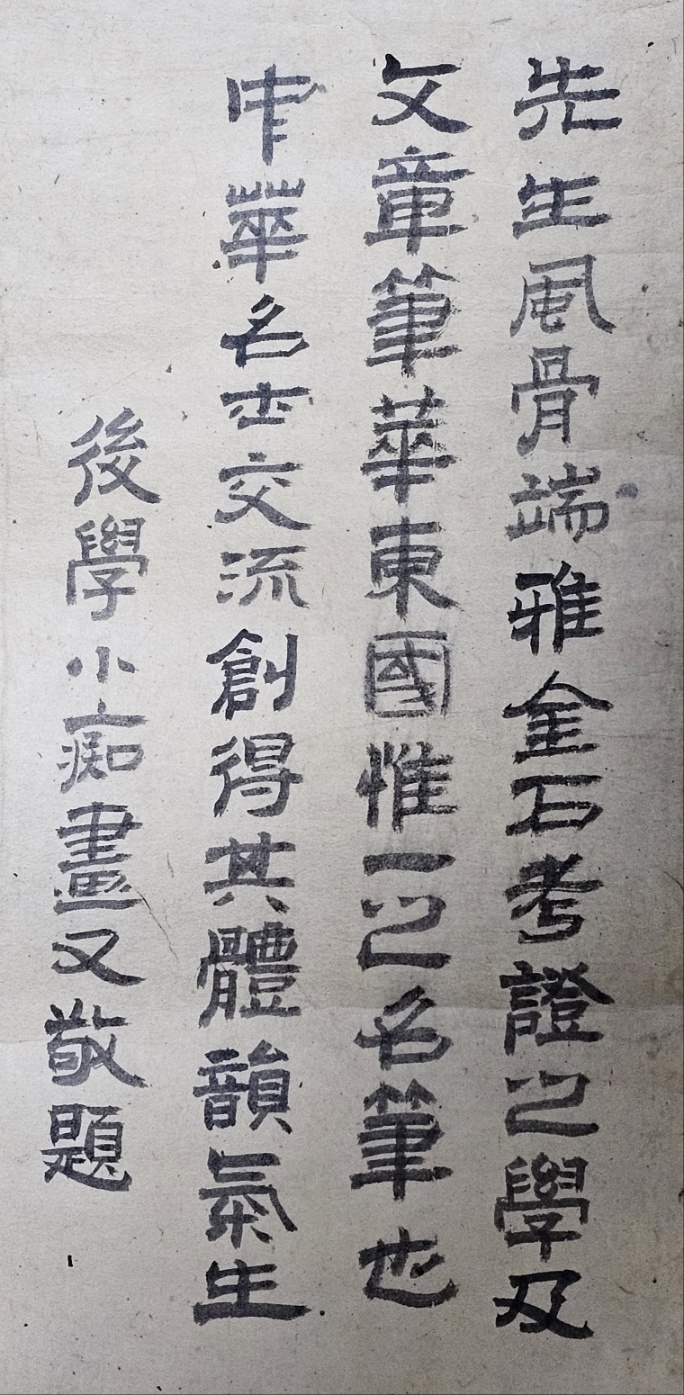 先生風骨端雅金石考證之學及
文章筆華東國惟一之名筆也
中華名士交流創得其體韻氣生
後學小痴畫又敬題